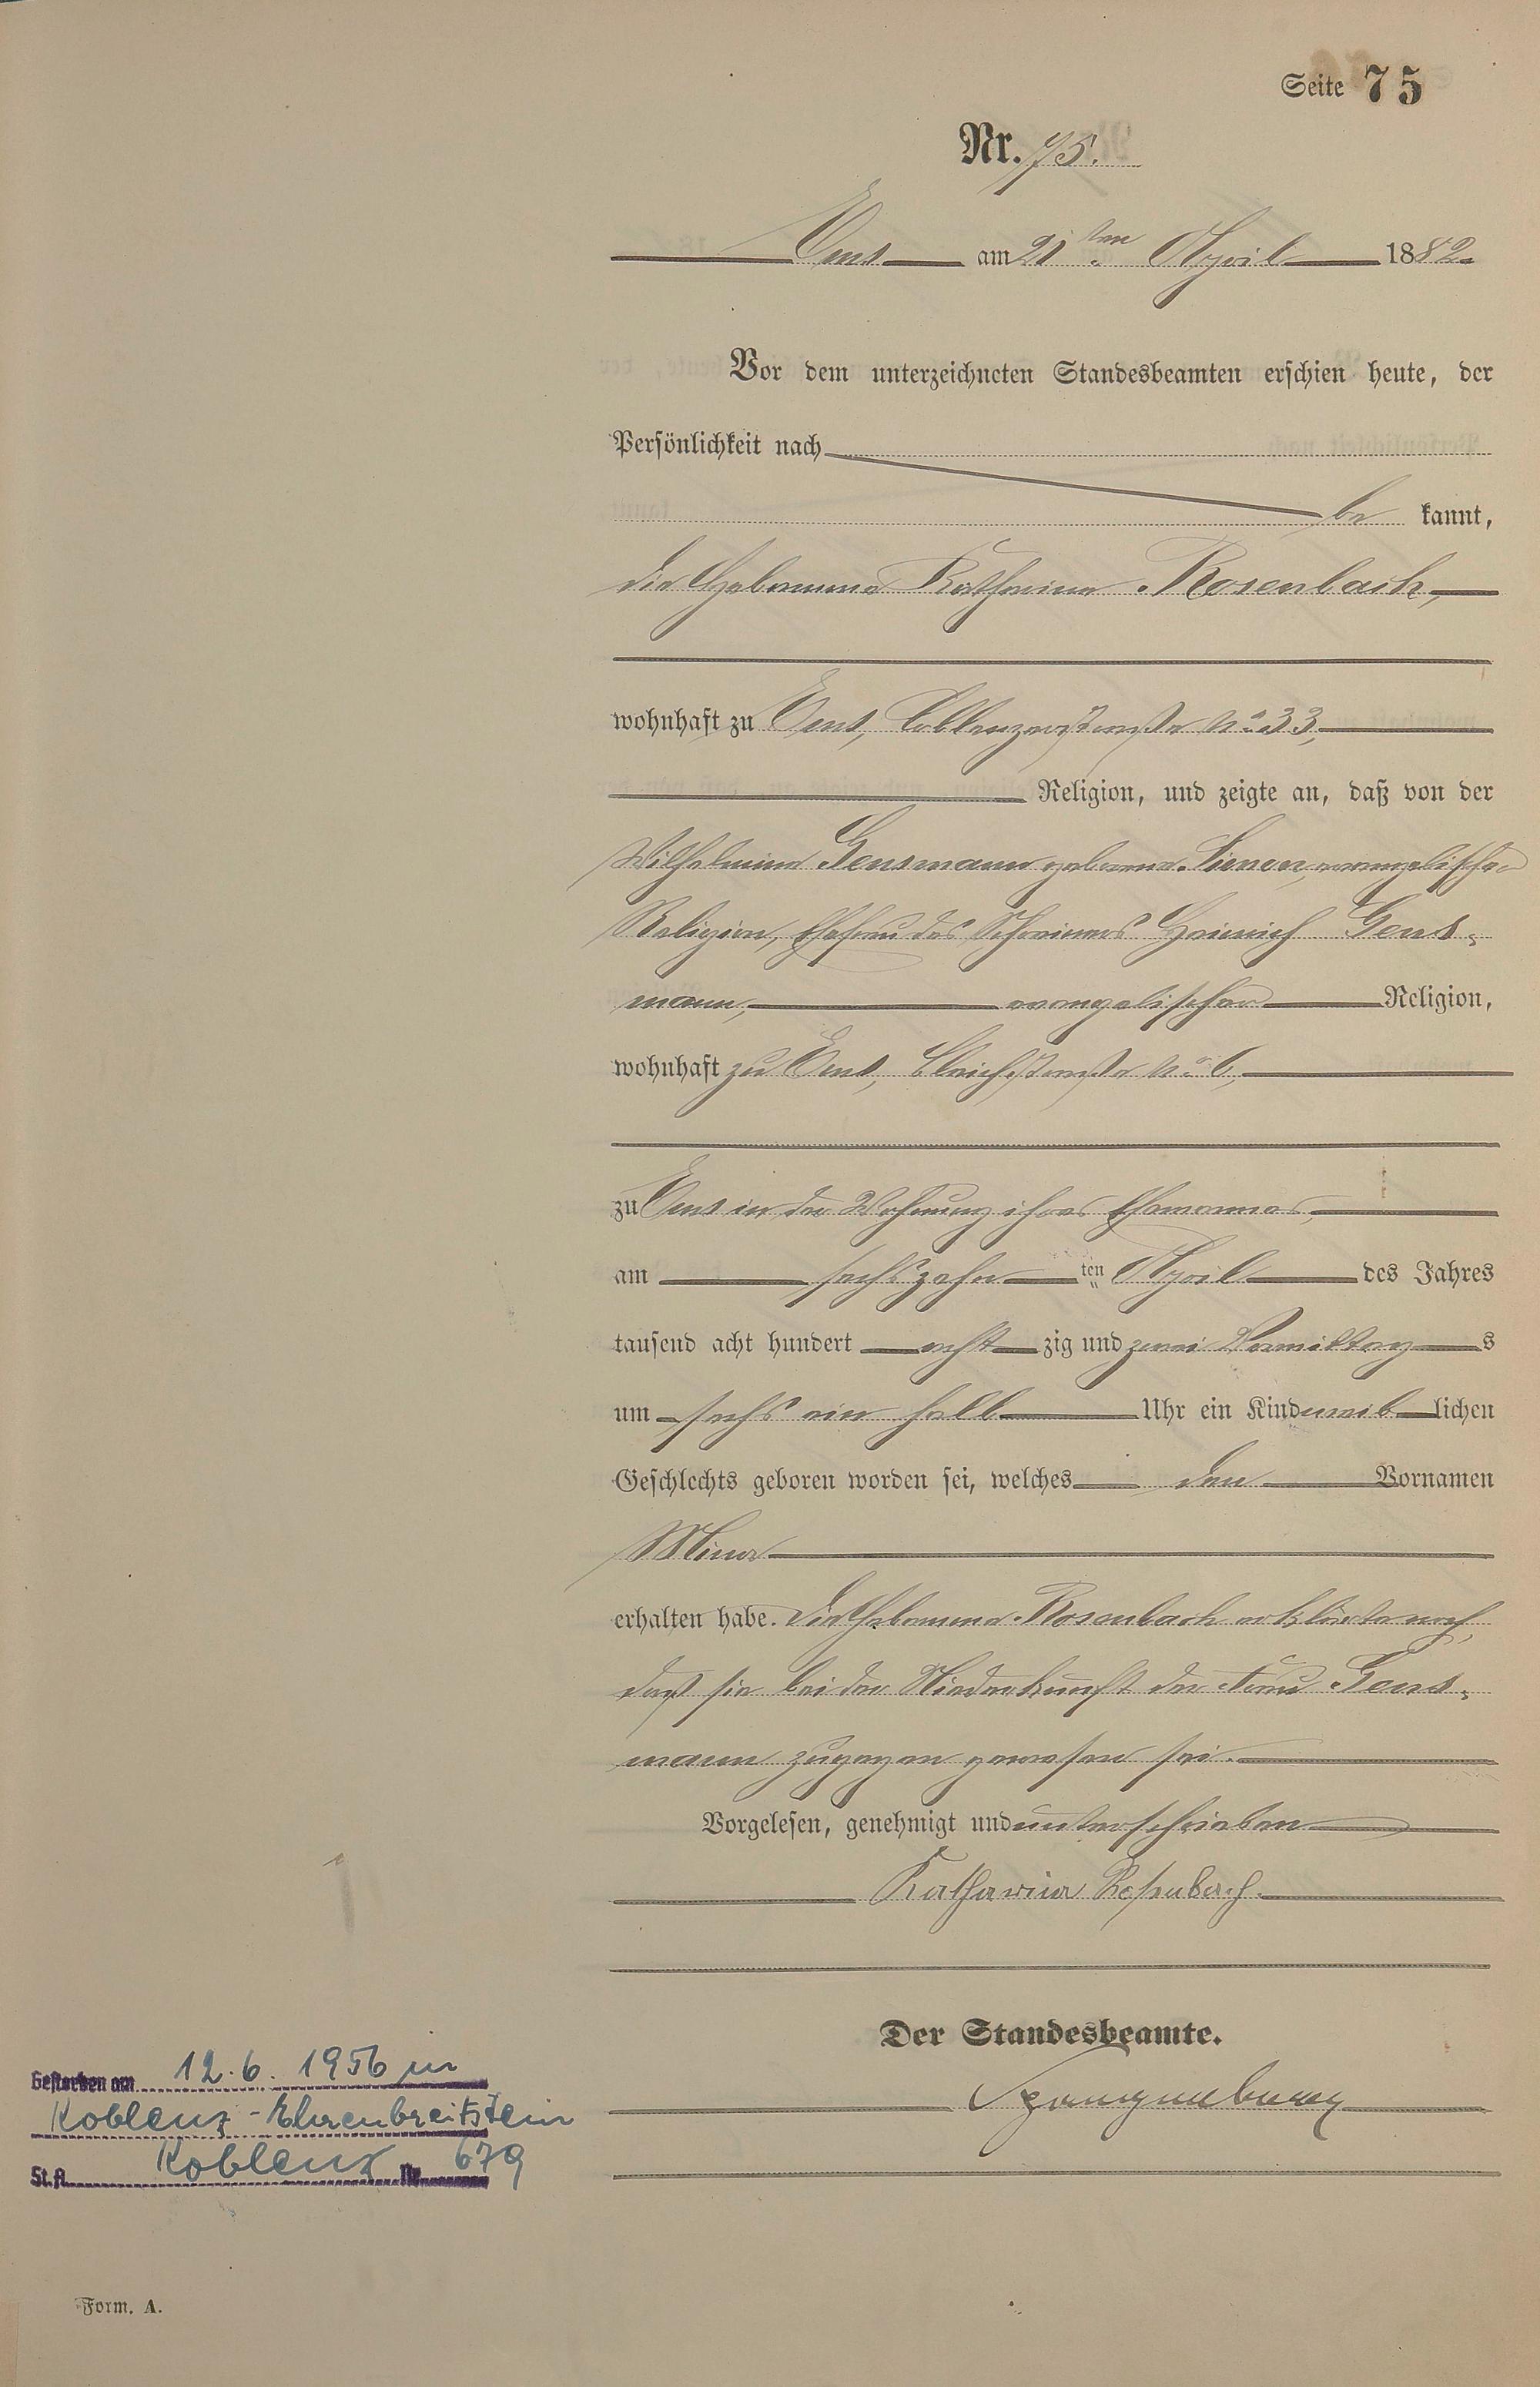 Seite 75
Nr. 75.
Ems am 21ten April 1882.
Vor dem unterzeichneten Standesbeamten erschien heute, der
Persönlichkeit nach
be kannt,
die Hebamme Katharina Rosenbach,
wohnhaft zu Ems, Coblenzerstraße No 33,
Religion, und zeigte an, daß von der
Wilhelmine Gensmann geborene evangelischer
Religion, Ehefrau des Schreiners Heinrich Gens-
mann, evangelischer Religion,
wohnhaft zu Ems, Bleichstraße No 6,
zu Ems in der Wohnung ihres Ehemannes,
am sechszehn ten April des Jahres
tausend acht hundert acht zig und zwei Vormittag s
um sechs ein halb Uhr ein Kind weib lichen
Geschlechts geboren worden sei, welches den Vornamen
Mina
erhalten habe. Die Hebamme Rosenbach erklärte noch,
daß sie bei der Niederkunft der Frau Gens-
mann zugegen gewesen sei.
Vorgelesen, genehmigt und unterschrieben
Katharina Rosenbach.
Der Standesbeamte.
Spangenberg
Gestorben am 12.6.1956 in
Koblenz-Ehrenbreitstein
St.A. Koblenz Nr. 679
Form. A.